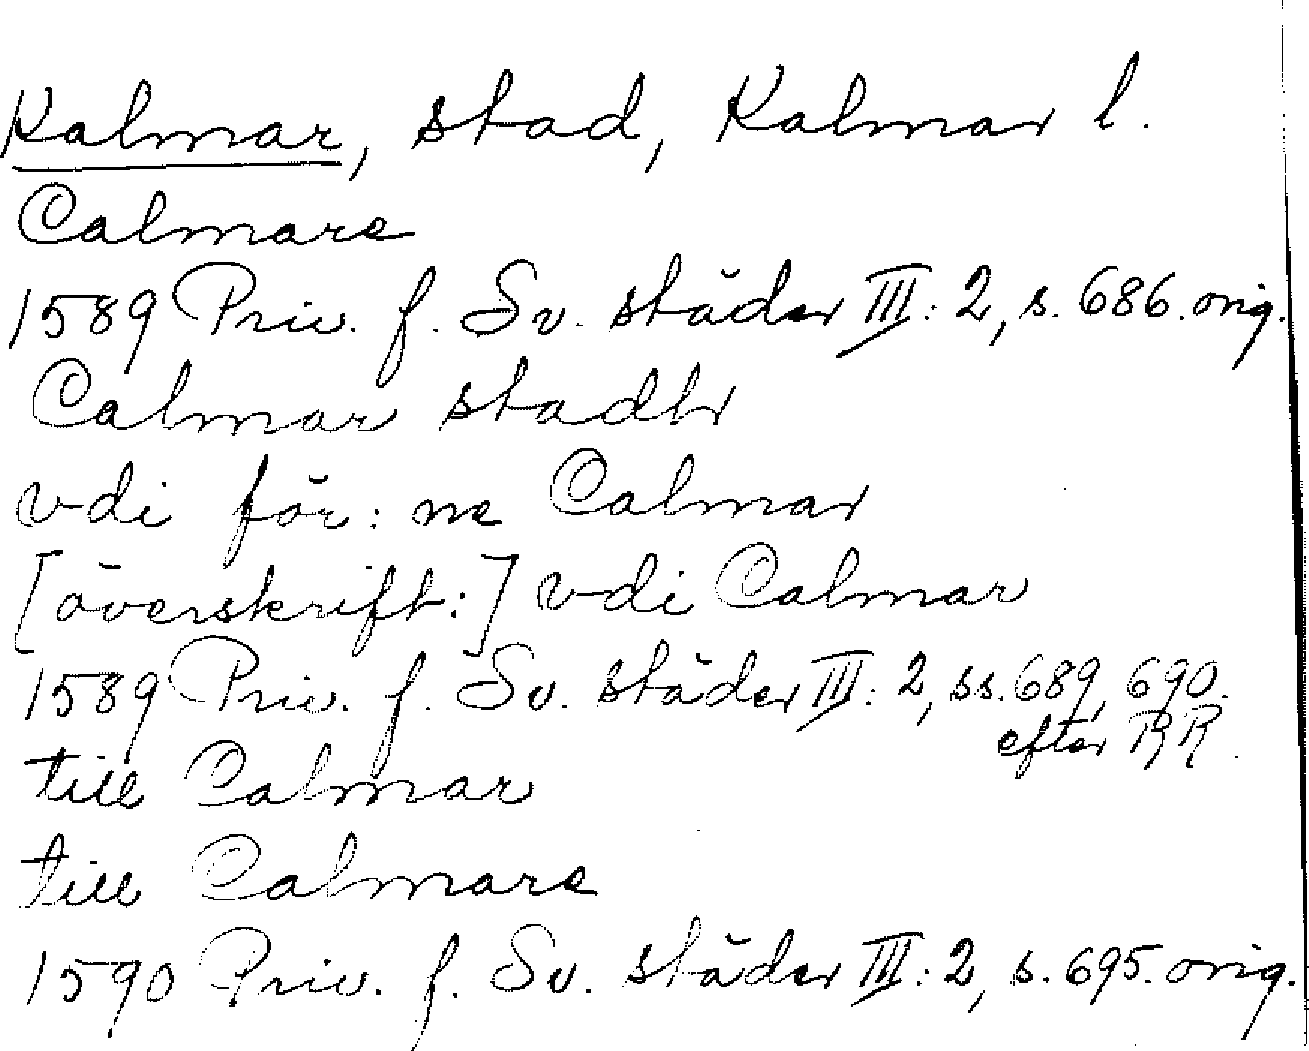 Kalmar, stad, Kalmar l.
Calmare
1589 Priv. f. Sv. städer III: 2, s. 686. orig.
Calmar stadh
vdi för: ne Calmar
[överskrift:] vdi Calmar
1589 Priv. f. Sv. städer III: 2, ss. 689, 690.
efter RR.
till Calmar
till Calmare
1590 Priv. f. Sv. städer III: 2, s. 695. orig.